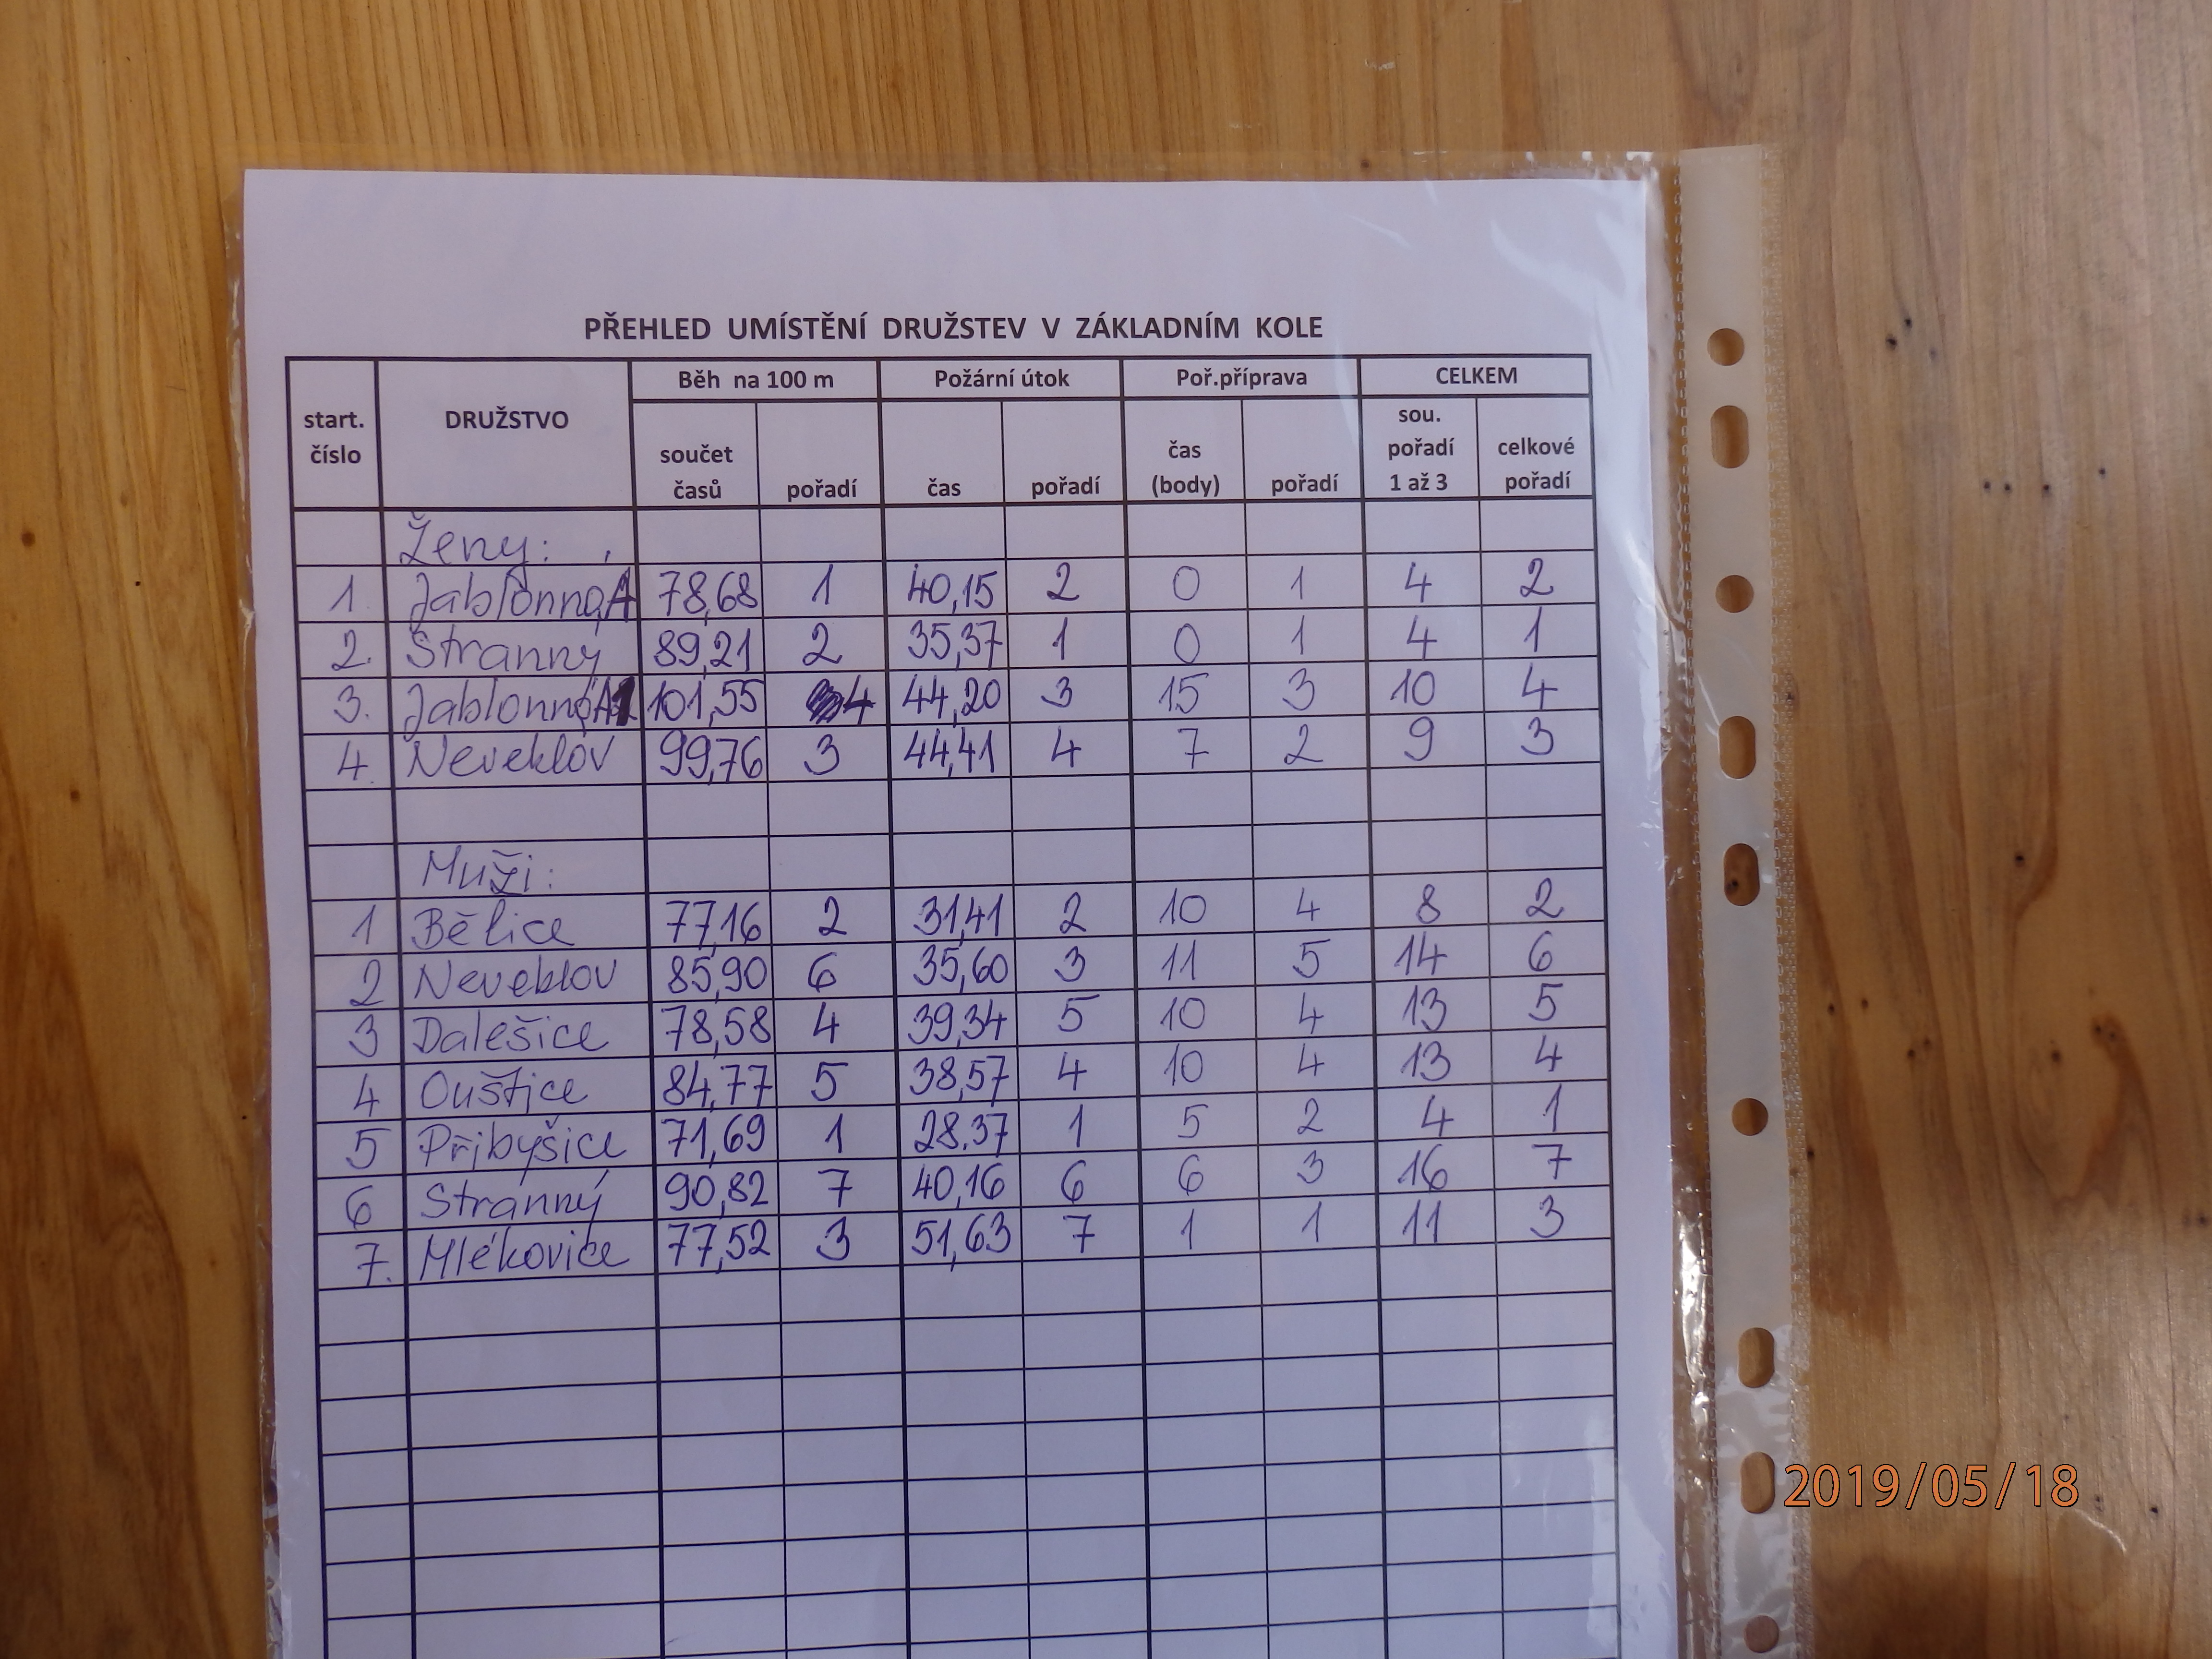 PŘEHLED UMÍSTĚNÍ DRUŽSTEV V ZÁKLADNÍM KOLE
start. číslo DRUŽSTVO Běh na 100 m Požární útok Poř.příprava CELKEM
součet časů pořadí čas pořadí čas (body) pořadí sou. pořadí 1 až 3 celkové pořadí
Ženy:
1. Jablonná A 78,68 1 40,15 2 0 1 4 2
2. Stranný 89,21 2 35,37 1 0 1 4 1
3. Jablonná 101,55 4 44,20 3 15 3 10 4
4. Neveklov 99,76 3 44,41 4 7 2 9 3
Muži:
1 Bělice 77,16 2 31,41 2 10 4 8 2
2 Neveklov 85,90 6 35,60 3 11 5 14 6
3 Dalešice 78,58 4 39,34 5 10 4 13 5
4 Ouštice 84,77 5 38,57 4 10 4 13 4
5 Přibyšice 71,69 1 28.37 1 5 2 4 1
6 Stranný 90,82 7 40,16 6 6 3 16 7
7. Mlékovice 77,52 3 51,63 7 1 1 11 3
2019/05/18